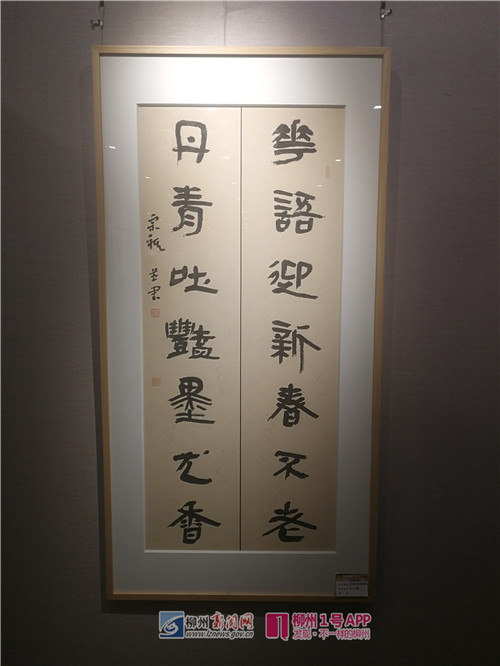 華語迎新春不老
丹青吐豔墨尤香
柳州新闻网
www.lznews.gov.cn
柳州1号APP
发现·不一样的柳州